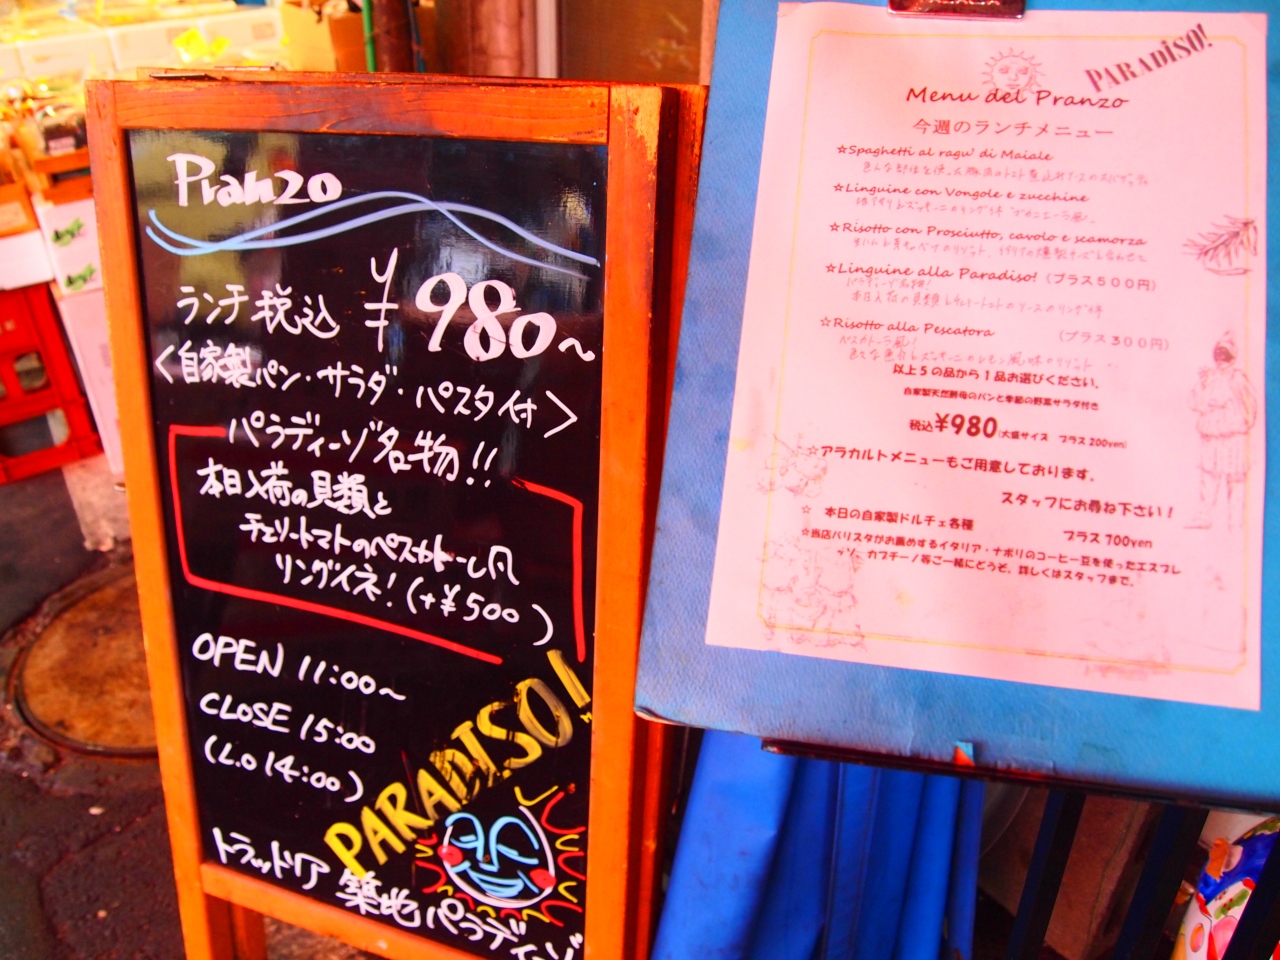 Pranzo
ランチ 税込 ¥980~
〈自家製パン・サラダ・パスタ付〉
パラディーゾ名物!!
本日入荷の貝類と
チェリートマトのペスカトーレ風
リングイネ!(+¥500)
OPEN 11:00~
CLOSE 15:00
(L.O 14:00)
PARADISO!
トラットリア 築地パラディーゾ
PARADISO!
Menu del Pranzo
今週のランチメニュー
☆Spaghetti al ragu' di Maiale
☆Linguine con Vongole e zucchine
☆Risotto con Prosciutto, cavolo e scamorza
☆Linguine alla Paradiso! (プラス500円)
パラディーゾ名物!
本日入荷の貝類とチェリートマトのソースのリングイネ
☆Risotto alla Pescatora (プラス300円)
ペスカトーラ風!
以上5の品から1品お選びください。
自家製天然酵母のパンと季節の野菜サラダ付き
税込¥980(大盛サイズ プラス200yen)
☆アラカルトメニューもご用意しております。
スタッフにお尋ね下さい!
☆ 本日の自家製ドルチェ各種 プラス700yen
☆当店バリスタがお薦めするイタリア・ナポリのコーヒー豆を使ったエスプレ
ッソ、カプチーノ等ご一緒にどうぞ。詳しくはスタッフまで。